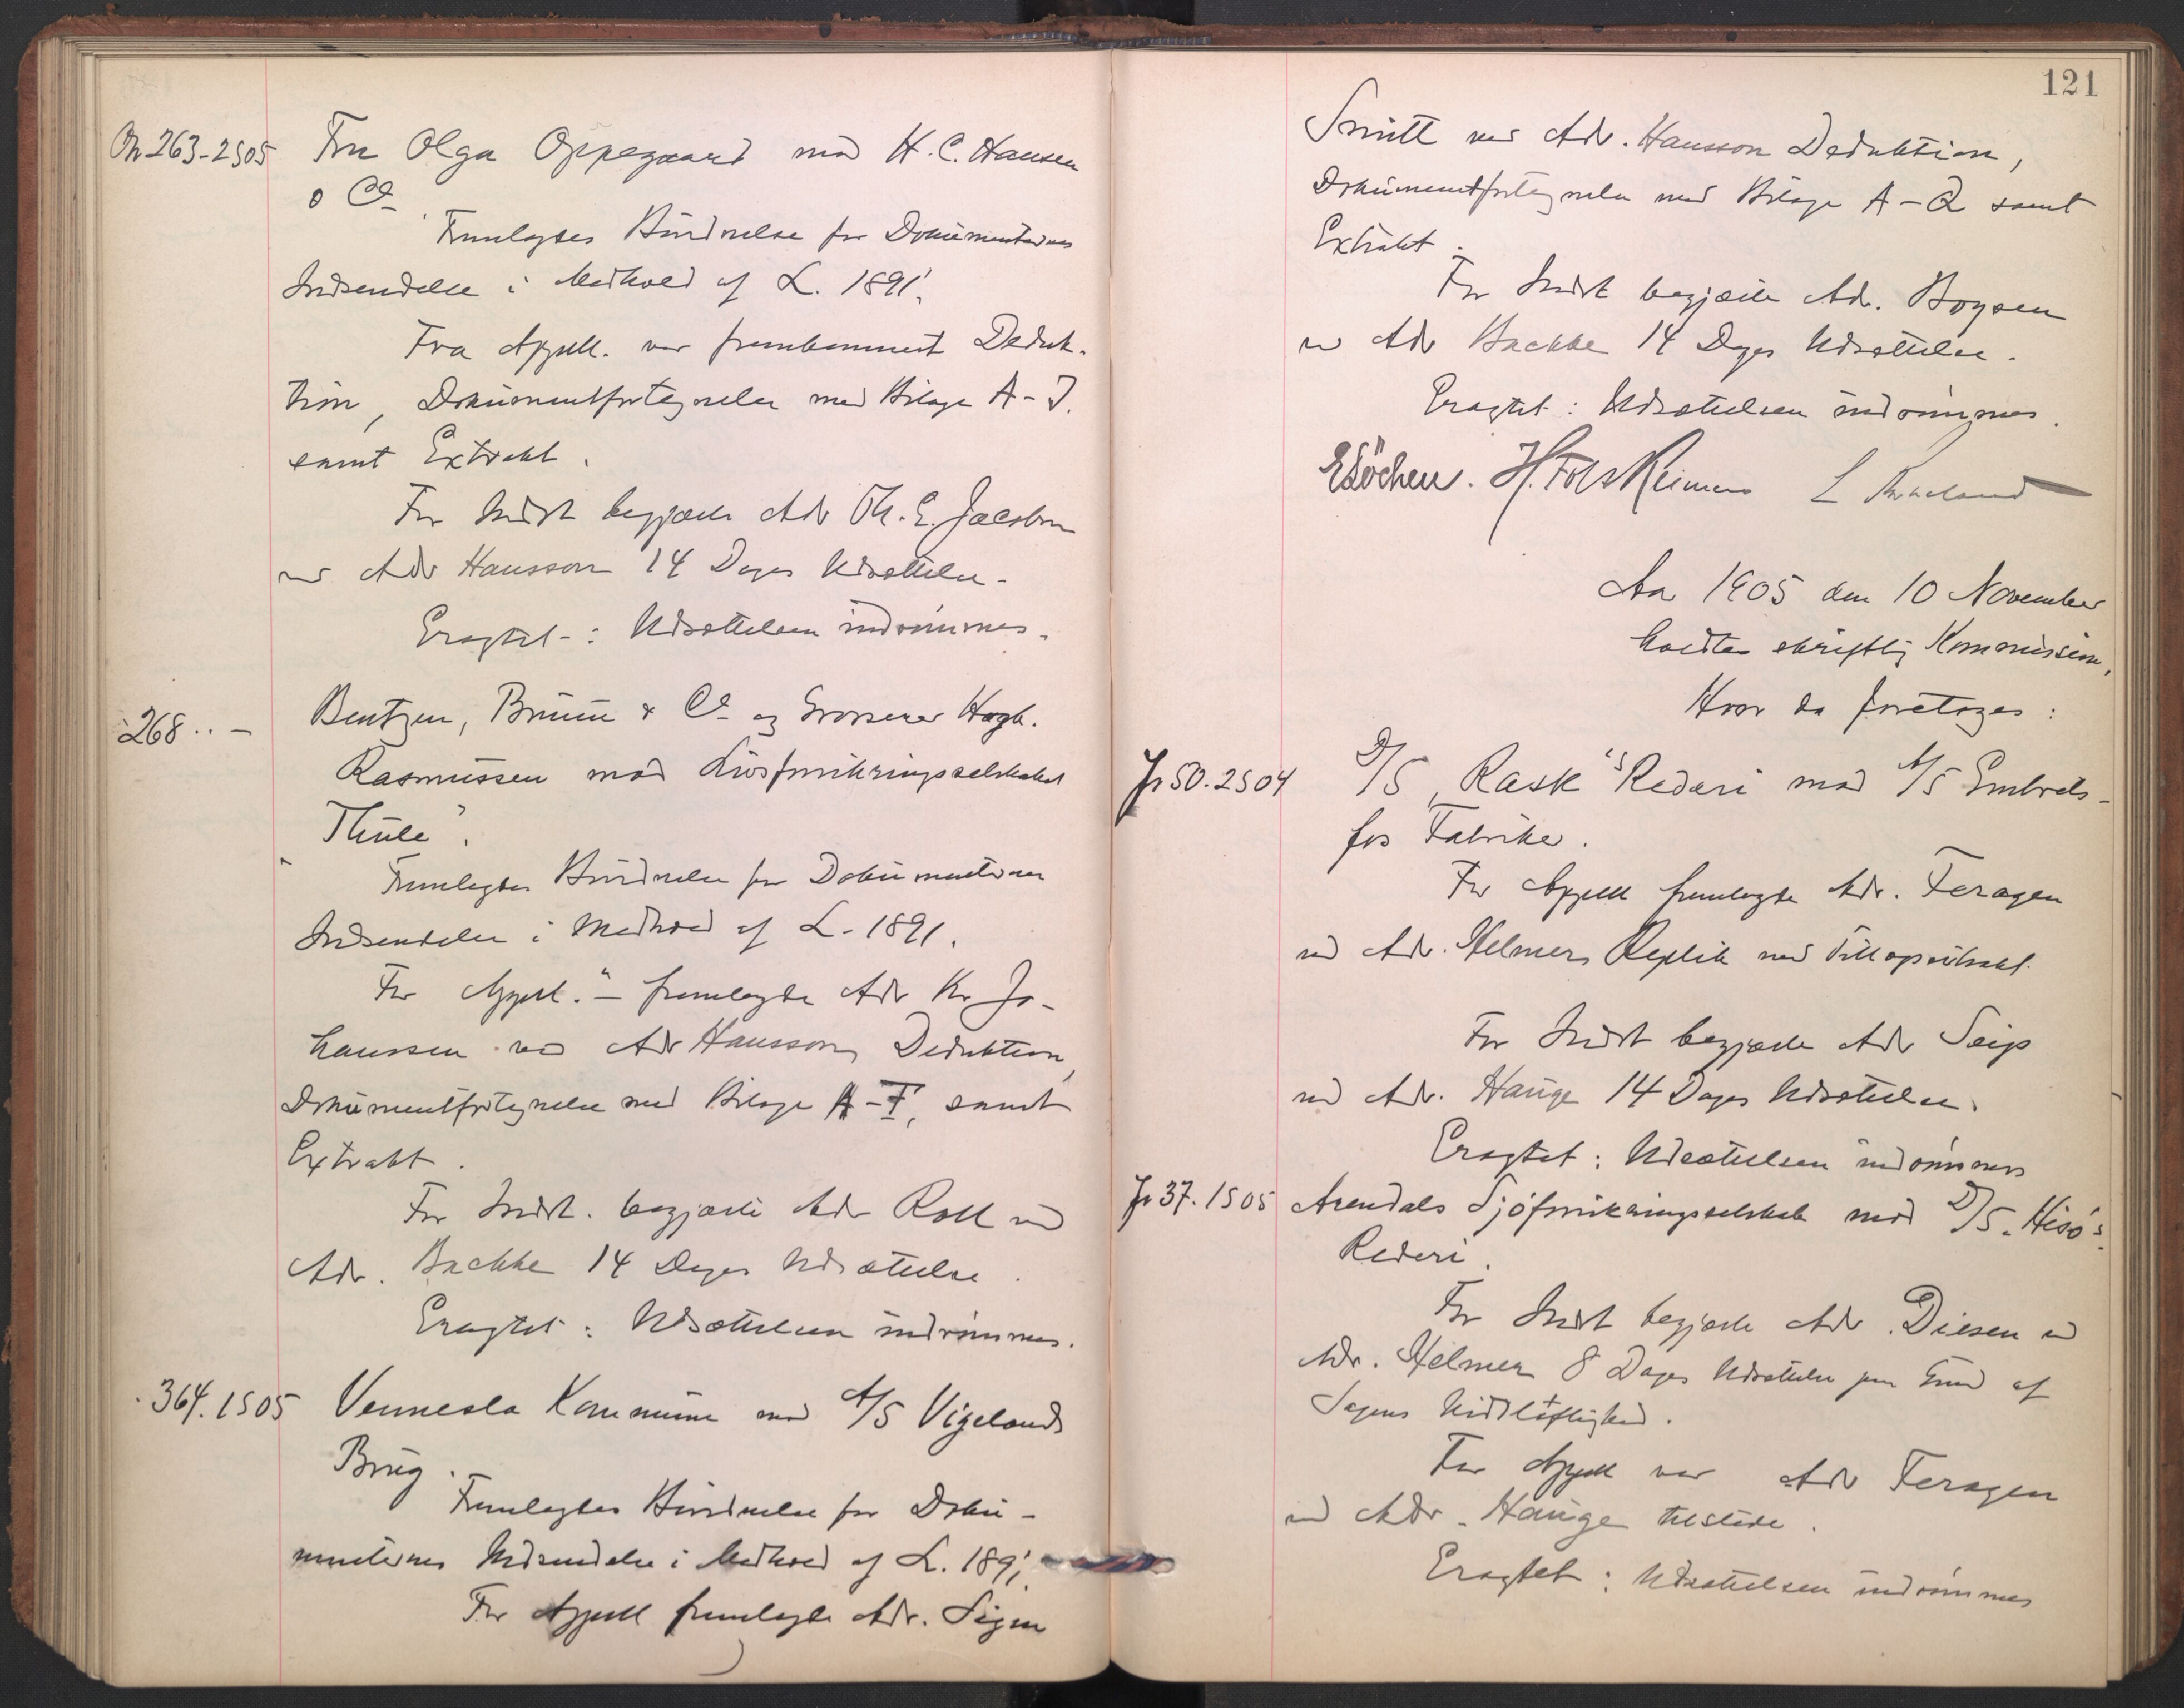 Ch 263-2505 Fru Olga Oppegaard mod H. C. Hansen
& Co.
Fremlagdes Kjendelse for Dokumenternes
Indsendelse i Medhold af L. 1891.
Fra Appell. var fremkommet Deduk-
tion, Dokumentfortegnelse med Bilage A-J.
samt Extrakt.
For Indst begjærte Adv Th. E. Jacobsen
ved Adv Hansson 14 Dages Udsættelse.
Eragtet: Udsættelsen indrømmes.
268 .. - Bentzen, Bruun & Co og Grosserer Hagb.
Rasmussen mod Livsforsikringsselskabet
Thule".
Fremlagdes Kjendelse for Dokumenternes
Indsendelse i Medhold af L. 1891.
For Appell. - fremlagde Adv Kr Jo-
hanssen ved Adv Hansson Deduktion,
Dokumentfortegnelse med Bilage A-F, samt
Extrakt.
For Indst. begjærte Adv Roll ved
Adv. Backke 14 Dages Udsættelse.
Eragtet: Udsættelsen indrømmes.
364. 1505 Vennesla Kommune mod A/S Vigelands
Brug.
Fremlagdes Kjendelse for Doku-
menternes Indsendelse i Medhold af L. 1891.
For Appell fremlagde Adv.
121
Smitt ved Adv. Hansson Deduktion,
Dokumentfortegnelse med Bilage A-Q samt
Extrakt.
For Indst begjærte Adv. Boysen
ved Adv Backke 14 Dages Udsættelse.
Eragtet: Udsættelsen indrømmes.
E Löchen. H. Reimers L
Aar 1905 den 10 November
holdtes skriftlig Kommission.
Hvor da foretoges:
Jr 50. 2504 D/S "Rask"s Rederi mod A/S Embrets-
fos Fabriker.
For Appell fremlagde Adv. Feragen
ved Adv. Helmers Replik med Tillægsextrakt.
For Indst begjærte Adv Seip
ved Adv. Hauge 14 Dages Udsættelse.
Eragtet: Udsættelsen indrømmes
Jr 37. 1505 Arendals Sjöforsikringsselskab mod D/S. Hisö's
Rederi.
For Indst begjærte Adv. Diesen ved
Adv. Helmers 8 Dages Udsættelse paa Grund af
Sagens Vidtløftighed.
For Appell var Adv Feragen
ved Adv. Hauge tilstede.
Eragtet: Udsættelsen indrømmes